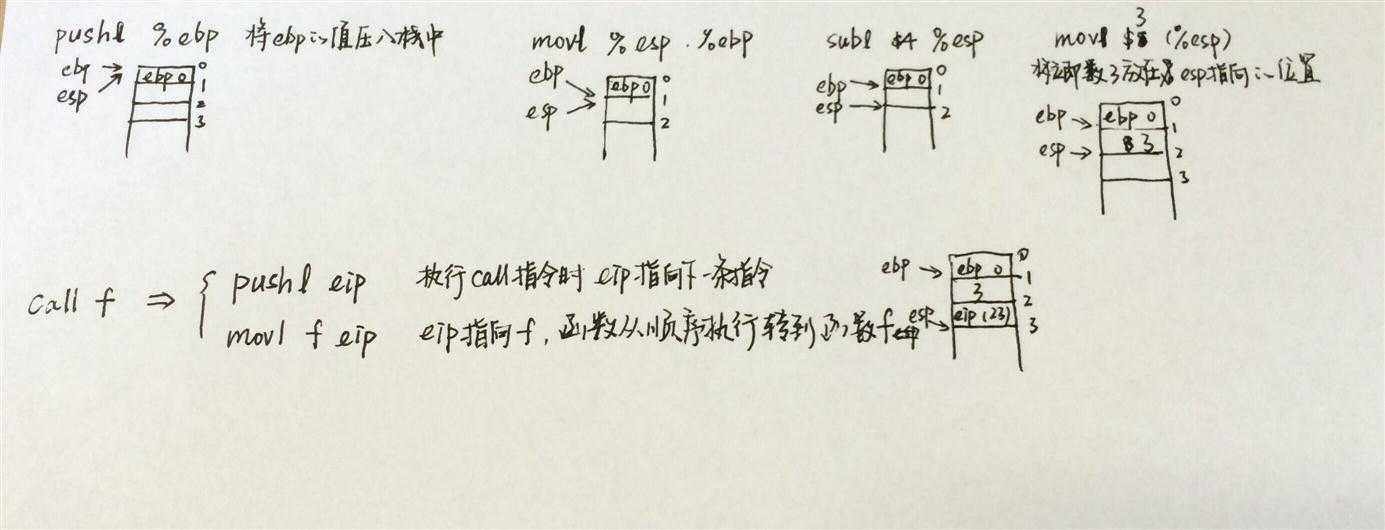 pushl %ebp 将ebp的值压入栈中
ebp
esp
ebp 0
0
1
2
3
movl %esp . %ebp
ebp
esp
ebp 0
0
1
2
subl $4 %esp
ebp
esp
ebp 0
0
1
2
movl $3 (%esp)
将立即数3放在esp指向的位置
ebp
esp
ebp 0
3
0
1
2
3
call f ⇒ {
pushl eip 执行call指令时 eip指向下一条指令
movl f eip eip指向f,函数从顺序执行转到函数f
ebp
esp
ebp 0
3
eip (23)
0
1
2
3